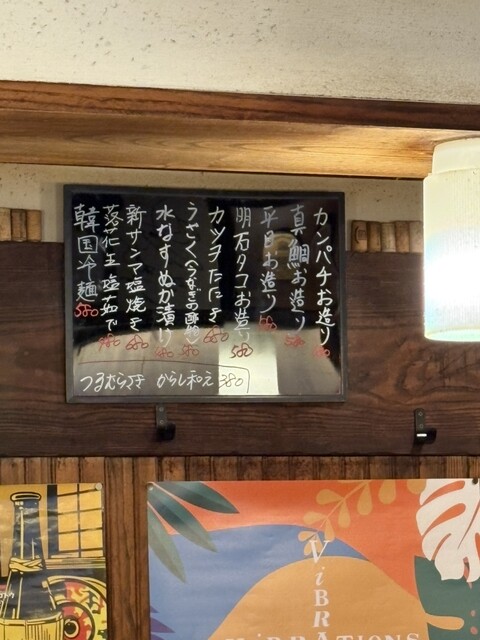 カンパチお造り 580
真鯛お造り 580
平目お造り
明石タコお造り 580
カツヲたたき 680
うざく(うなぎの酢物) 580
水なすぬか漬け 580
新サンマ塩焼き 680
落花生 塩茹で 580
韓国冷麺 580
つるむらさき からし和え 380
ViBRATIONS